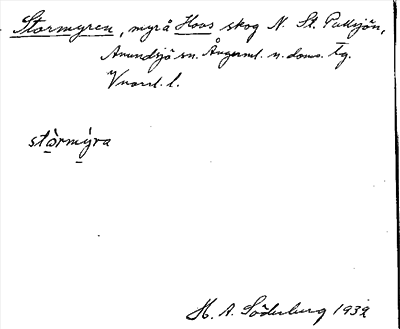 Stormyren, myrå Hoos skog N. St. Pulsjön,
Anundsjö sn. Ångerml. n. doms. Tg.
V nord. l.
stòrmýra
H. A. Söderberg 1932